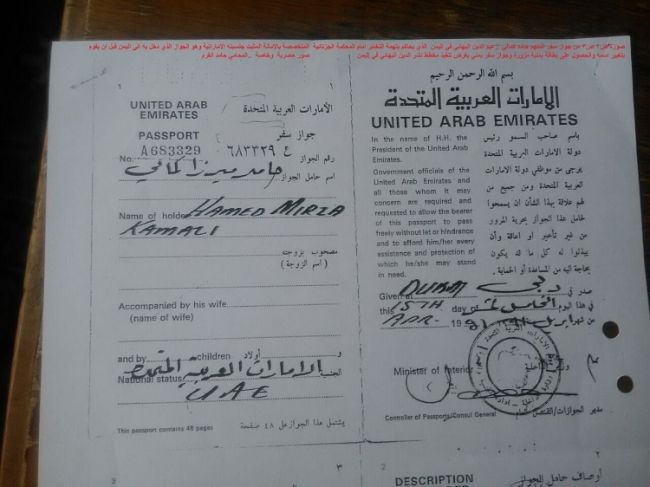 بسم الله الرحمن الرحيم
الامارات العربية المتحدة
UNITED ARAB EMIRATES
In the name of H.H. the
President of the United Arab
Emirates.
Government officials of the
United Arab Emirates and
all those whom it may
concern are required and
requested to allow the bearer
of this passport to pass
freely without let or hindrance
and to afford him/her every
assistance and protection of
which he/she may stand
in need.
باسم صاحب السمو رئيس
دولة الامارات العربية المتحدة
يرجى من موظفي دولة الامارات
العربية المتحدة ومن جميع من
لهم علاقة بهذا الشأن ان يسمحوا
لحامل هذا الجواز بحرية المرور
من غير تأخير او اعاقة وأن
يبذلوا له كل ما قد يكون
بحاجة اليه من المساعدة أو الحماية.
Given at DUBAI دبي صدر في
this 15TH day of في هذا اليوم
APR. 19 91 من شهر ابريل
Minister of Interior
Controller of Passports/Consul General
مدير الجوازات/القنصل العام
2
DESCRIPTION
أوصاف حامل الجواز
١ 1
UNITED ARAB
EMIRATES
الأمارات العربية المتحدة
PASSPORT جواز سفر
No. A683329 ٦٨٣٣٢٩ ع رقم الجواز
حامد ميرزا كمالي
اسم حامل الجواز
Name of holder HAMED MIRZA
KAMALI
مصحوب بزوجته
(اسم الزوجة)
Accompanied by his wife
(name of wife)
and by children أولاد و
الامارات العربية المتحدة
National status الجنسية
UAE
This passport contains 48 pages
يشتمل هذا الجواز على ٤٨ صفحة
3 ٣